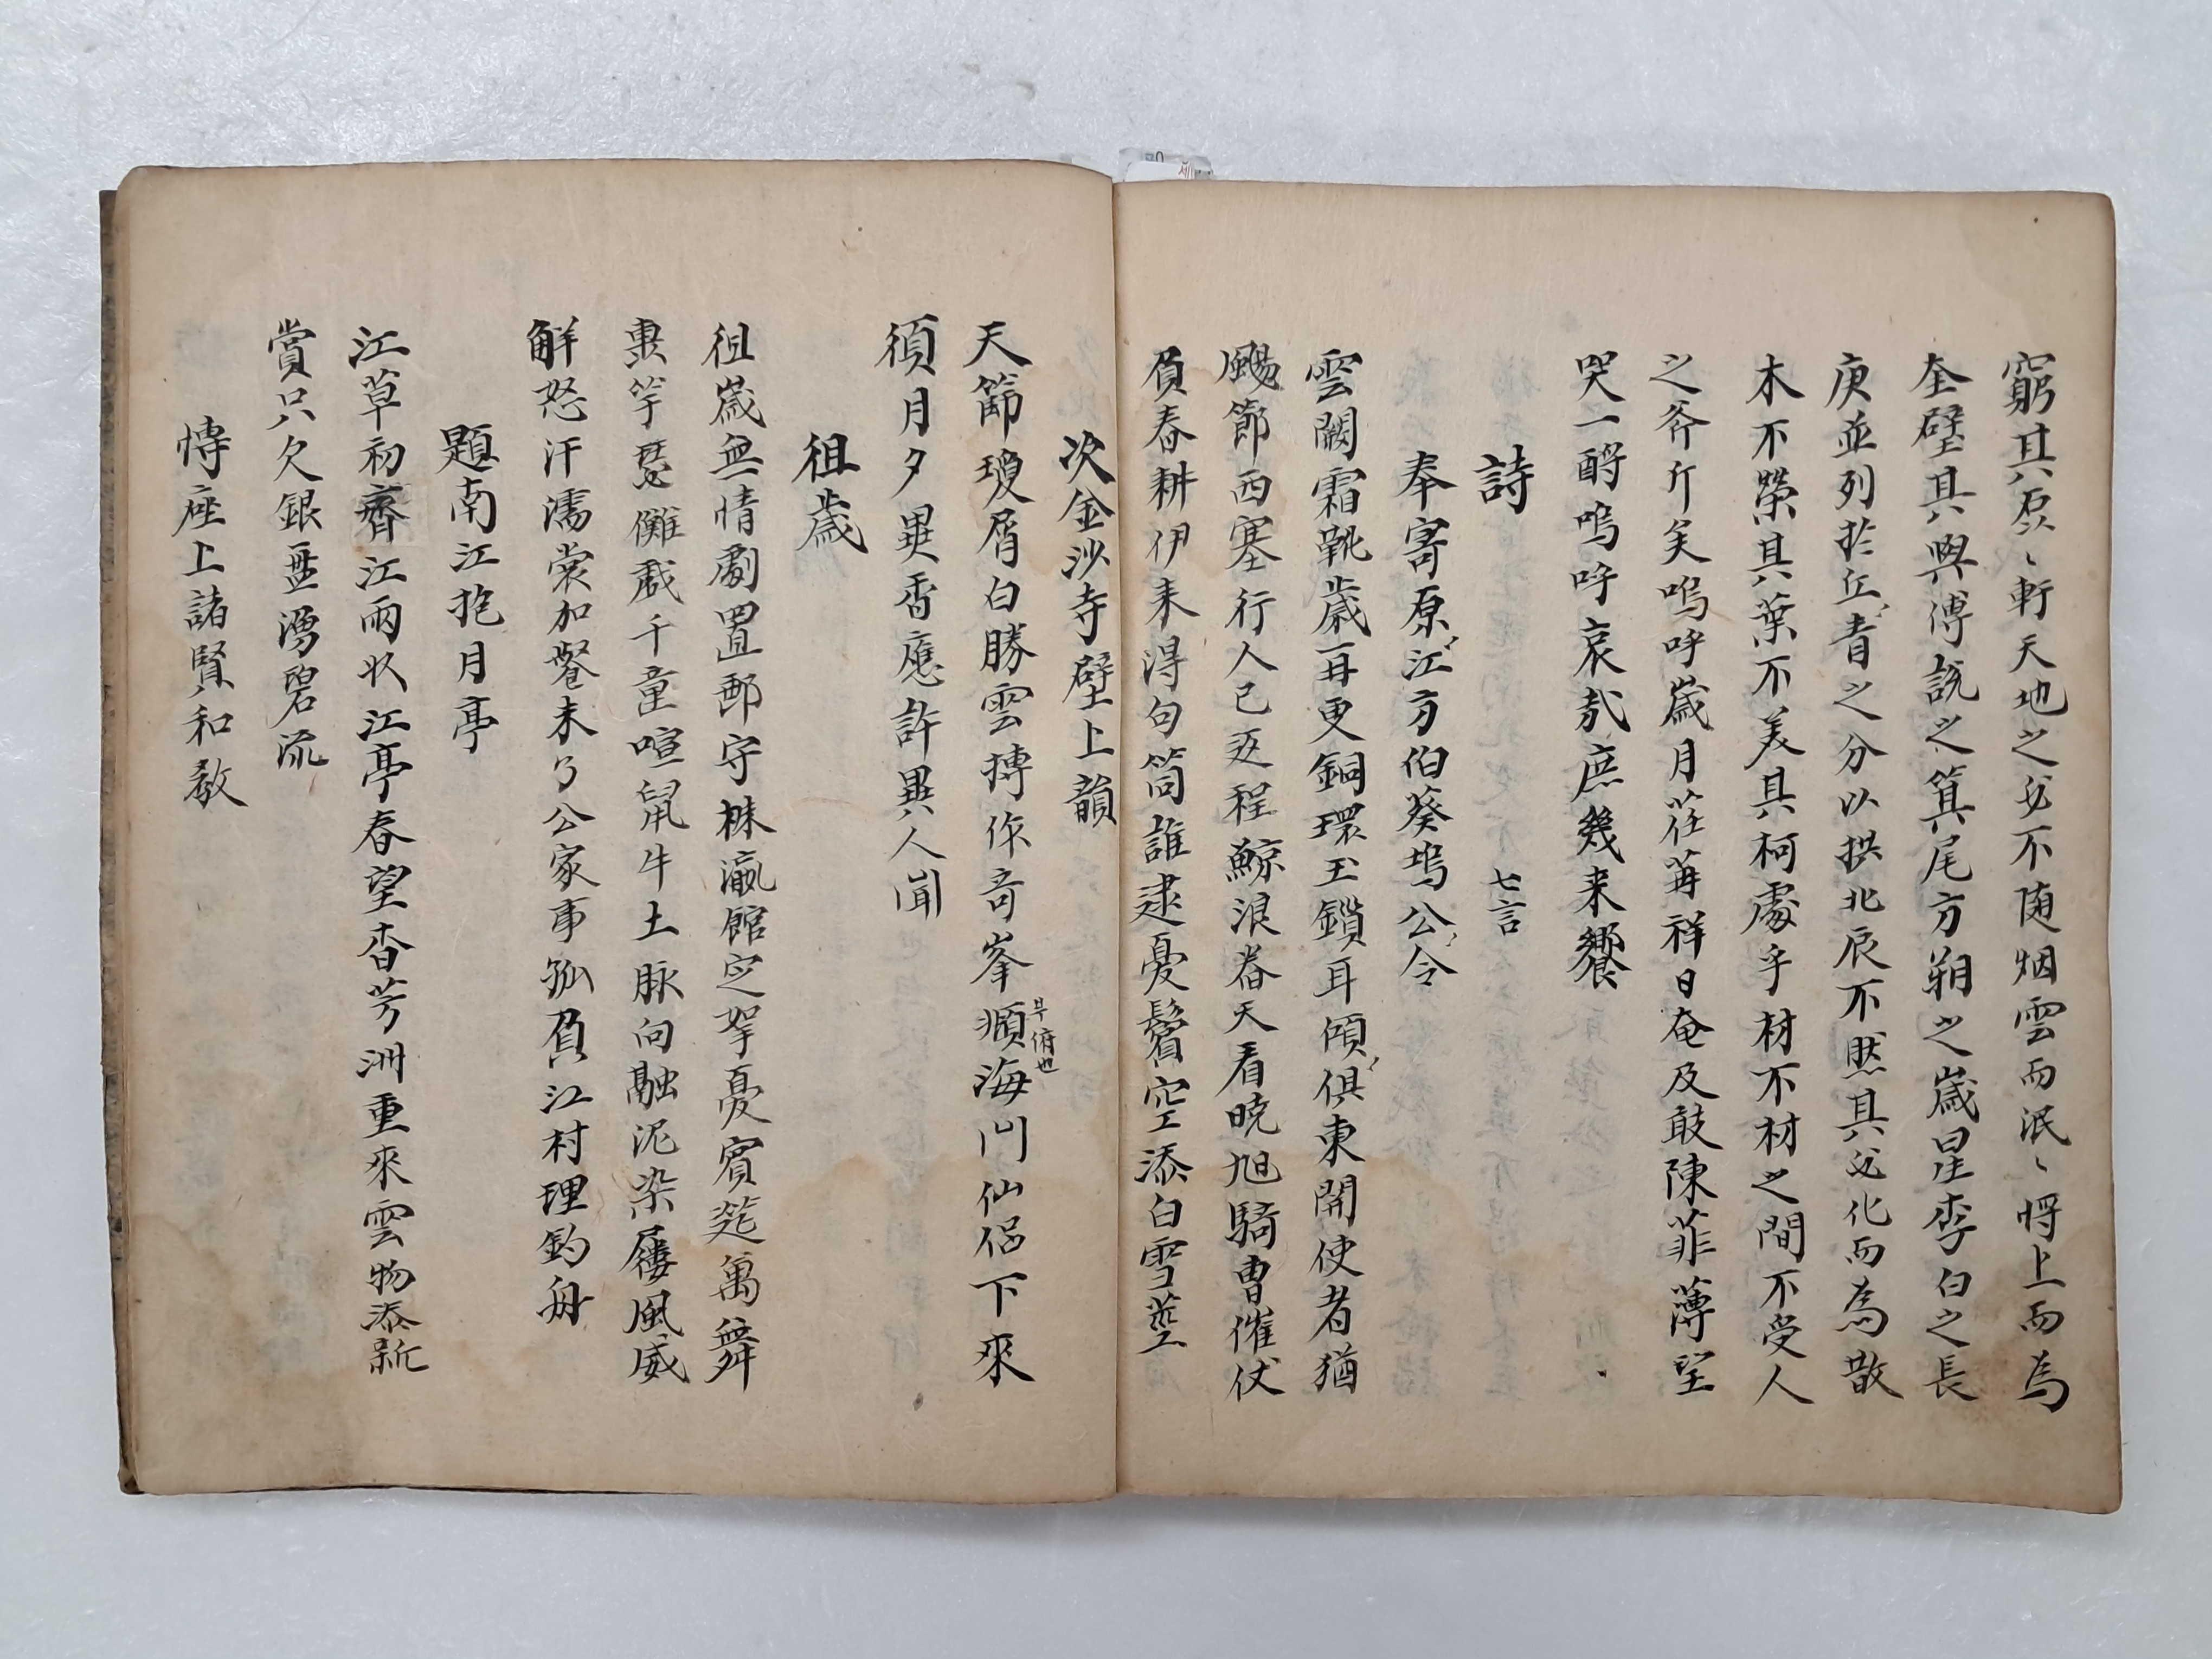 窮其原〻軒天地之必不随烟雲而泯〻將上而為
奎壁其與傅說之箕尾方朔之歲星李白之長
庚並列於丘青之分以拱北辰不然其必化而為散
木不榮其葉不美其柯處乎材不材之間不受人
之斧斤矣嗚呼歲月荏苒祥日奄及敢陳菲薄望
哭一酹嗚呼哀哉庶幾来饗
詩 七言
奉寄原江方伯葵塢公令
雲闕霜靴歲再更銅環玉鎖耳傾俱東開使者猶
颺節西塞行人已返程鯨浪春天看曉旭騎曹催伏
負春耕伊来得句筒誰逮憂鬢空添白雪莖
次金沙寺壁上韻
天篩瓊屑白勝雲搏作奇峯頫海門仙侶下來
早俯也
須月夕異香應許異人聞
徂歲
徂歲無情劇置郵守株瀛館定孥憂賓筵萬舞
竽瑟儺戱千童喧鼠牛土脉向融泥染屨風威
解怒汗濡裳加餐未了公家事孤負江村理釣舟
題南江抱月亭
江草初齊江雨收江亭春望杳芳洲重來雲物添新
賞只欠銀盃湧碧流
慱座上諸賢和教